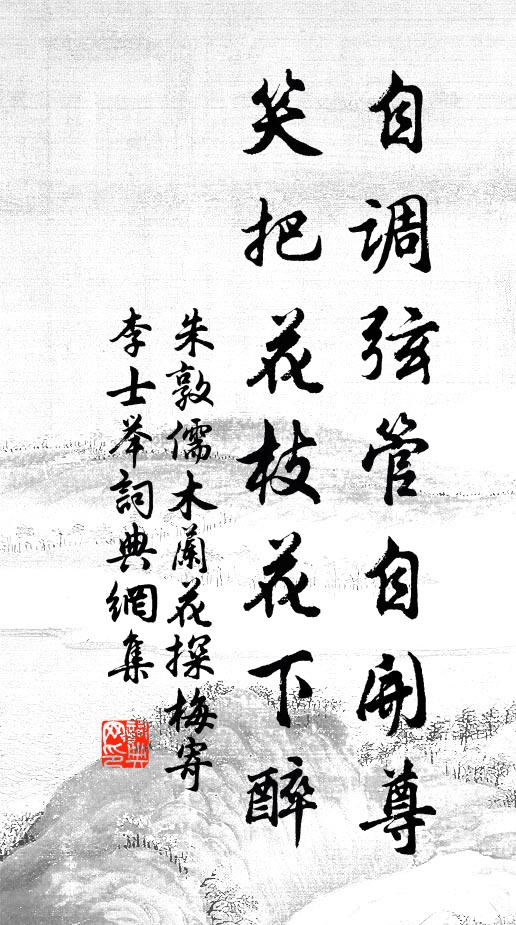 自调弦管自開尊
笑把花枝花下醉
朱敦儒木蘭花探梅寄
李士举詞典網集